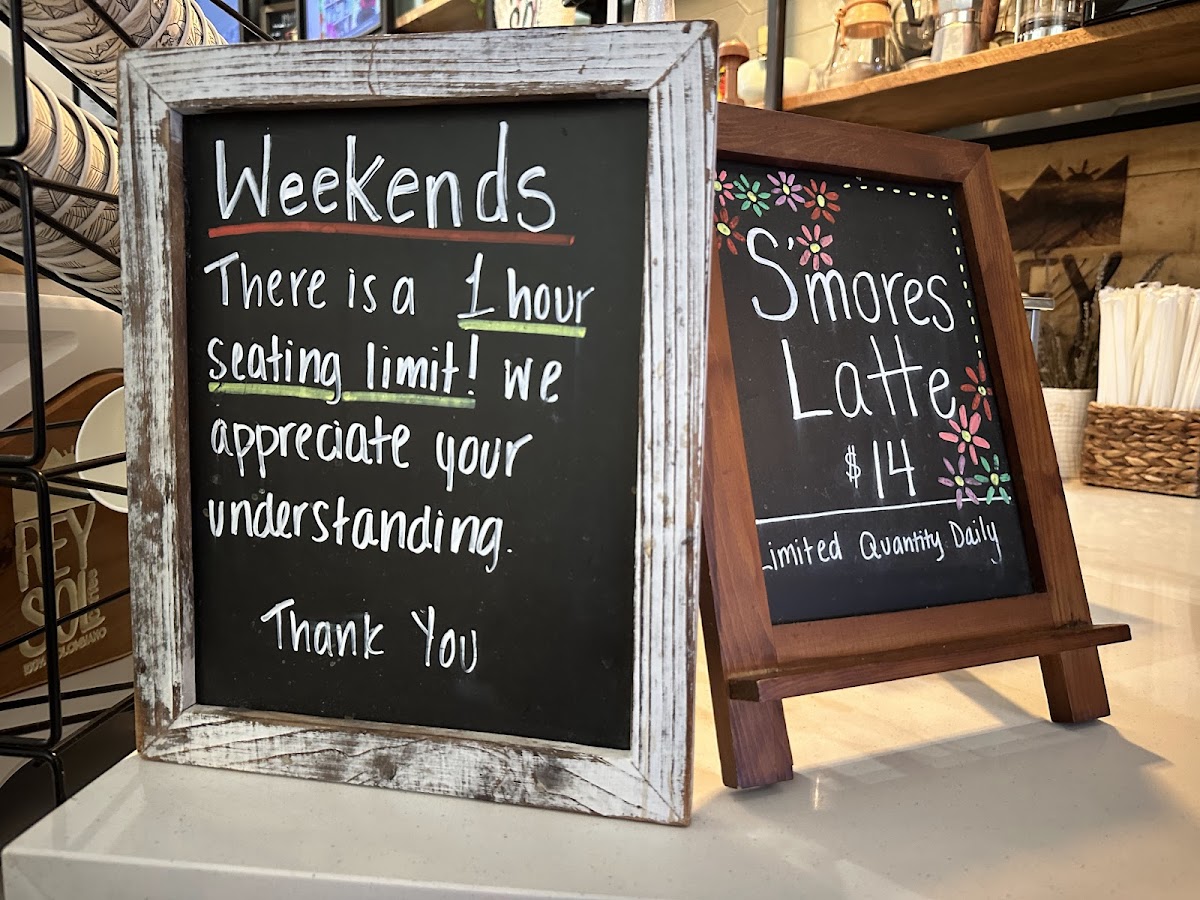 Weekends
There is a 1 hour
seating limit! we
appreciate your
understanding.
Thank You
S'mores
Latte
$14
Limited Quantity Daily
REY
SOL
100% COLOMBIANO